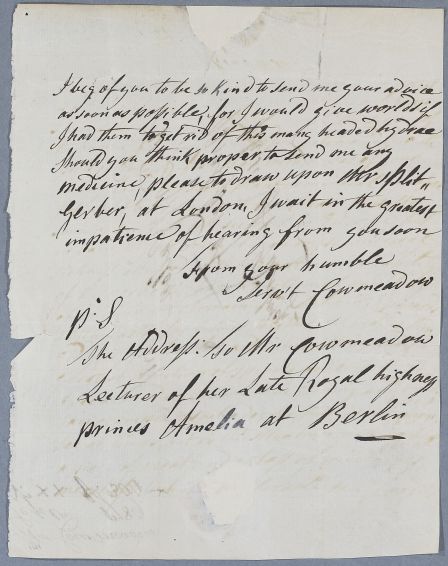 I beg of you to be so kind to send me your advice
as soon as possible, for I would give worlds if
I had them to get rid of this many headed hydrae
Should you think proper to send me any
medicine, please to draw upon Mr Split„
Gerber, at London, I wait in the greatest
impatience of hearing from you soon
from your humble
Serv't Cowmeadow
p. S
The Address. to Mr Cowmeadow
Lecturer of her Late Royal highness
princes Amelia at Berlin